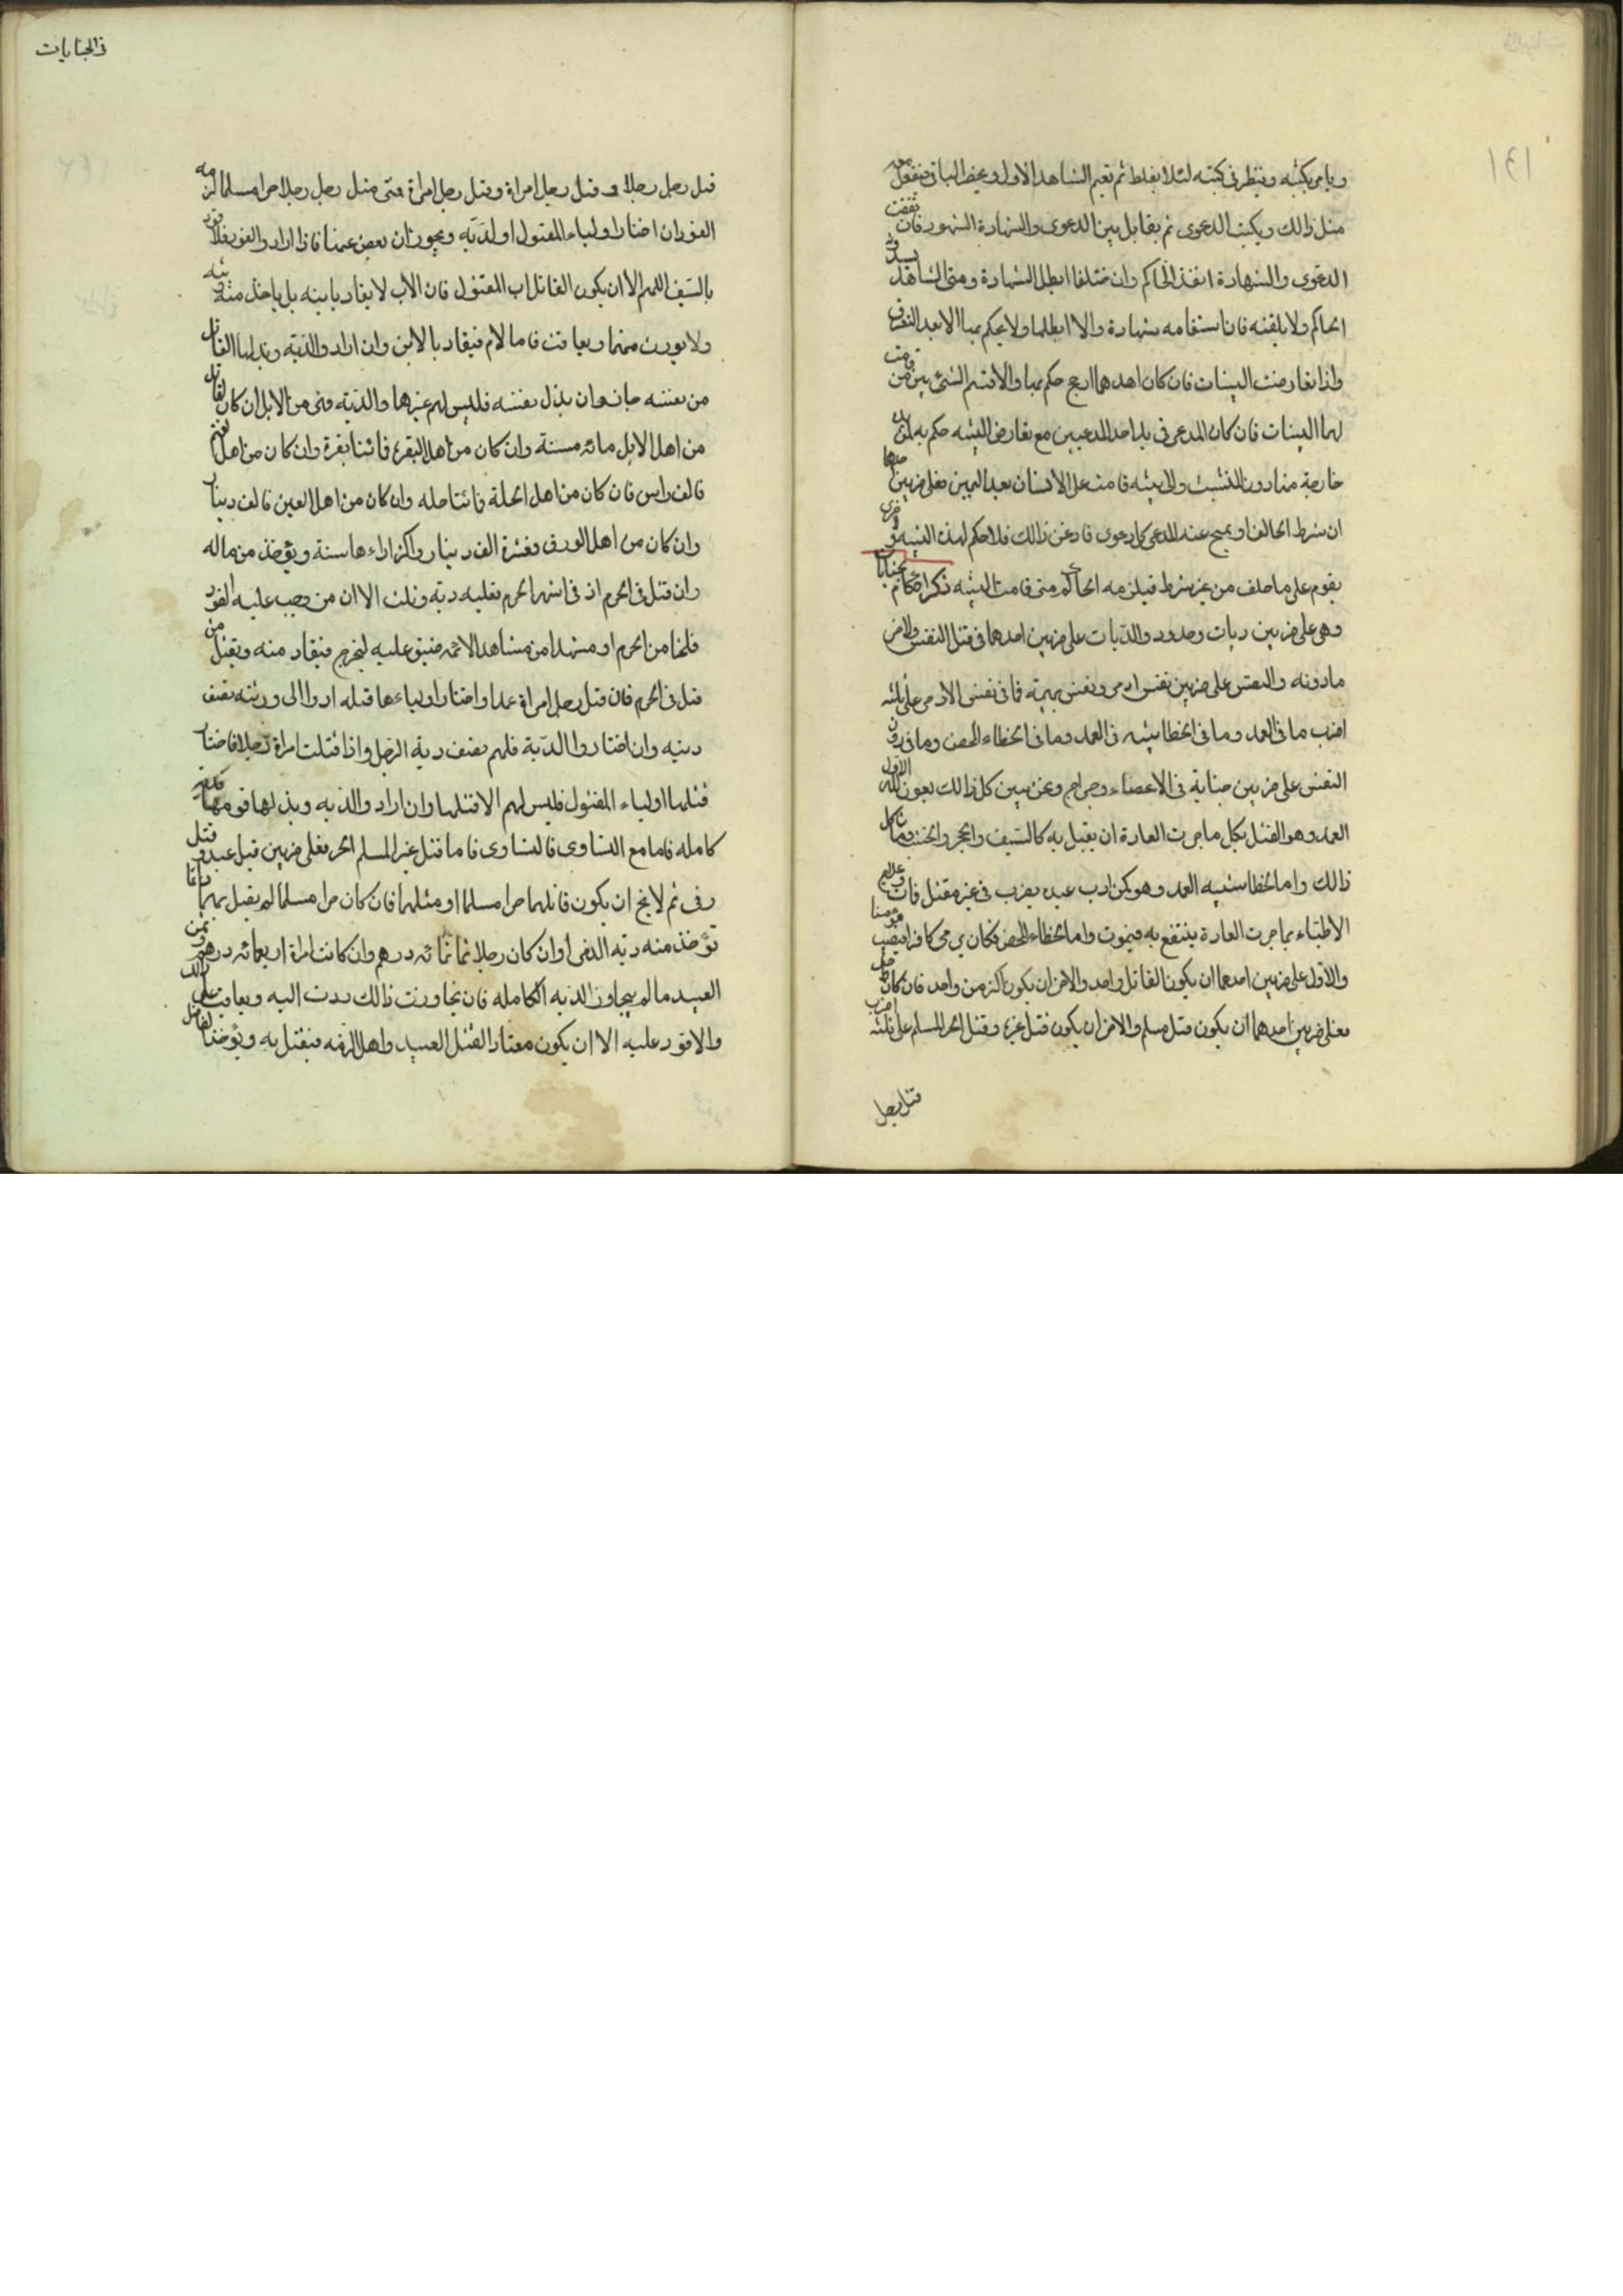 ويامر بكتبه وينظر فى كتبه لئلا يغلط ثم يقيم الشاهد الاول ويحضر الباقى فيفعل معه
مثل ذالك ويكتب الدعوى ثم يقابل بين الدعوى والشهادة الشهود فان اتفقت
الدعوى والشهادة انفذ الحاكم وان ختلفا ابطل الشهادة ومتى الشاهد
الحاكم ولا يلقنه فان استقامه شهادة والا ابطلها ولا يحكم بها الا بعد
واذا تعارضت البينات فان كان احدهما ارجح حكم بها والا قسم الشئ بين من قامت
لهما البينات فان كان المدعى فى يد احد المدعيين مع تعارض البينه حكم به لمن يده
خارجة منذ دون المتشبث واى بينه قامت على الانسان بعد اليمين فعلى ضربين احدها
ان شرط الحالف او يمحى عند المدعى كل دعوى فادعى ذالك فلا حكم لهذه البينه والاخرى
يقوم على ما حلف من غير شرط فيلزمه الحاكم متى قامت البينه ذكر احكام الجنايات
وهى على ضربين ديات وحدود والديات على ضربين احدهما فى قتل النفس والاخر
مادونه والنفس على ضربين نفس ادمى ونفس بهيمة فما فى نفس الادمى على ثلثه
اضرب ما فى العمد وما فى الخطا شبيه فى العمد وما فى الخطاء المحض وما فى دون
النفس على ضربين جناية فى الاعضاء وجراح ونحن نبين كل ذالك بعون الله الاول
العمد وهو القتل بكل ما جرت العادة ان يقتل به كالسيف والحجر والخشب وما شاكل
ذالك واما الخطا شبيه العمد وهو كمن ادب عبده بضرب فى غير مقتل فمات وعلاج
الاطباء بما جرت العادة ينتفع به فيموت واما الخطاء المحض فكان يرمى كافرا فيصيب مؤمنا
والاول على ضربين احدهما ان يكون القاتل واحد والاخر ان يكون اكثر من واحد فان كان
فعلى ضربين احدهما ان يكون قتل مسلم والاخر ان يكون قتل غيره وقتل الحر المسلم على ثلثه اضرب
قتل رجل
فى الجنايات
قتل رجل رجلا و قتل رجل امراة وقتل رجل امراة متى قتل رجل رجلا حرا مسلما لزمه
القود ان اختار اولياء المقتول او لدية ويجوز ان يعفى عنها فاذا اراد والقود فلا قود
بالسيف اللهم الا ان يكون القاتل اب المقتول فان الاب لا يقاد بابنه بل ياخذ منه
ولا يورث منها ويعاقب فاما لام فيقاد بالابن وان اراد والدية وبذلها القاتل
من نفسه جاز وان بذل نفسه فليس لهم غيرها والدية فى من الابل ان كان القاتل
من اهل الابل مائه مسنة وان كان من اهل البقر فمائتا بقرة وان كان من اهل الغنم
فالف راس فان كان من اهل الحلة فمائتا حله وان كان من اهل العين فالف دينار
وان كان من اهل الورق فعشرة الف دينار واكثر اداءها سنة ويؤخذ من ماله
وان قتل فى الحرم او فى اشهر الحرم فعليه دية وثلث الا ان من وجب عليه القود
فلتجا من الحرم او مشهدا من مشاهد الائمه ضيق عليه ليخرج فيقاد منه ويقتل من
قتل فى الحرم فان قتل رجل امراة عمدا واختار اولياءها قتله ادوا الى ورثته نصف
ديته وان اختاروا الدية فلهم نصف دية الرجل واذا قتلت امراة رجلا فاختار
قتلها اولياء المقتول فليس لهم الا قتلها وان اراد والديه وبذلها قومها
كامله فاما مع التساوى فالتساوى فاما قتل غير المسلم الحر فعلى ضربين قتل عبد و قتل
ذمى ثم لا يخ ان يكون قاتلهما حرا مسلما او مثلهما فان كان حرا مسلما لم يقتل بهما
تؤخذ منه دية الذمى او ان كان رجلا ثمانمائه درهم وان كانت امراة اربعمائه درهم وثمن
العبيد ما لم يتجاوز الديه الكامله فان تجاوزت ذالك ردت اليه ويعاقب على ذالك
والا قود عليه الا ان يكون معتاد القتل العبيد واهل الذمه فيقتل به ويؤخذ